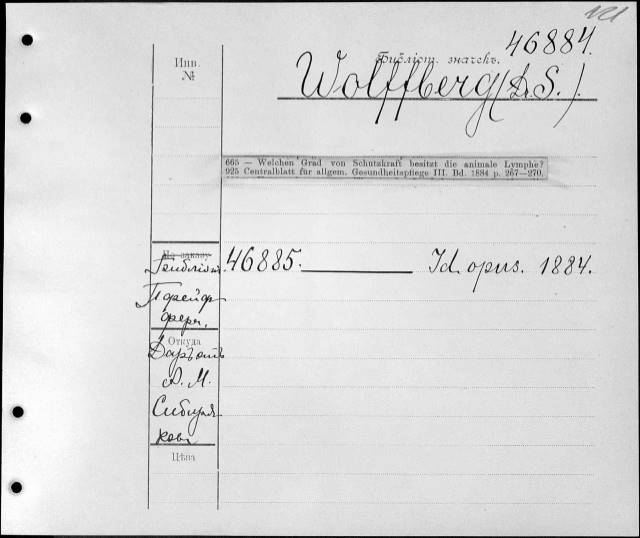 121
46884.
Инв.
№
Библіот. значекъ.
Wolffberg (D. S.).
665 — Welchen Grad von Schutzkraft besitzt die animale Lymphe?
925 Centralblatt für allgem. Gesundheitspflege III. Bd. 1884 p. 267—270.
По заказу
46885. Id. opus. 1884.
Откуда
Даръ отъ
А. М.
Сибиря-
кова
Цѣна